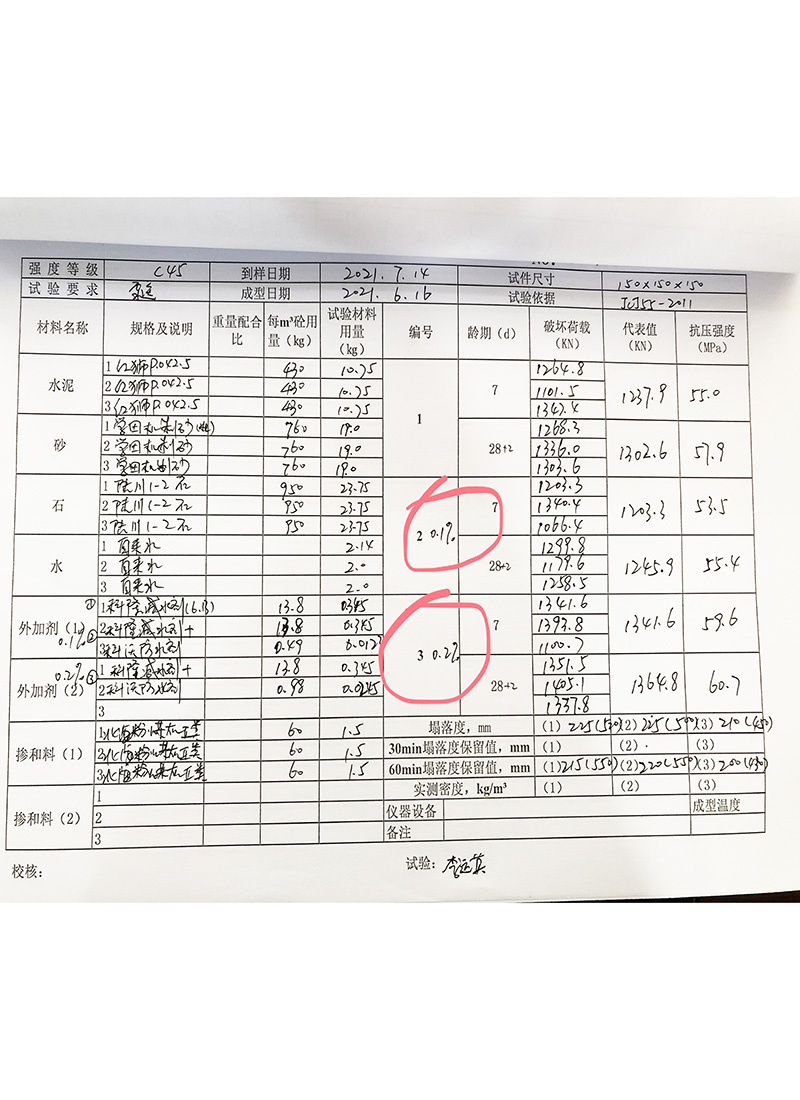 强度等级 C45 到样日期 2021.7.14 试件尺寸 150×150×150
试验要求 成型日期 2021.6.16 试验依据 JGJ55-2011
材料名称 规格及说明 重量配合比 每m³砼用量(kg) 试验材料用量(kg) 编号 龄期(d) 破坏荷载(KN) 代表值(KN) 抗压强度(MPa)
水泥
1 红狮P.O42.5 430 10.75
2 红狮P.O42.5 430 10.75
3 红狮P.O42.5 430 10.75
砂
1 机制砂 760 19.0
2 机制砂 760 19.0
3 机制砂 760 19.0
石
1 陆川1-2石 950 23.75
2 陆川1-2石 950 23.75
3 陆川1-2石 950 23.75
水
1 自来水 2.14
2 自来水 2.0
3 自来水 2.0
外加剂(1) 0.1% ②
① 1 科隆减水剂 13.8 0.345
2 科隆减水剂+ 13.8 0.345
3 科沃防水剂 0.49
外加剂(2) 0.2% ③
1 科隆减水剂+ 13.8 0.345
2 科沃防水剂 0.98 0.0245
3
掺和料(1)
1 60 1.5
2 60 1.5
3 60 1.5
掺和料(2)
1
2
3
1
7 1264.8 1101.5 1347.4 1237.9 55.0
28+2 1268.3 1336.0 1303.6 1302.6 57.9
2 0.1%
7 1203.3 1340.4 1066.4 1203.3 53.5
28+2 1299.8 1179.6 1258.5 1245.9 55.4
3 0.2%
7 1341.6 1393.8 1100.7 1341.6 59.6
28+2 1351.5 1405.1 1337.8 1364.8 60.7
塌落度, mm (1) 225(520) (2) 225(500) (3) 210(450)
30min塌落度保留值, mm (1) (2) (3)
60min塌落度保留值, mm (1) 215(550) (2) 220(550) (3) 200(430)
实测密度, kg/m³ (1) (2) (3)
仪器设备 成型温度
备注
校核: 试验: